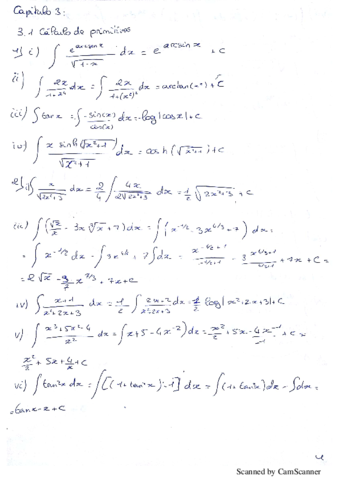 Capitulo 3:
3.1 Cálculo de primitivas
1) i) ∫ e^arcsenx / √1-x dx = e^arcsenx + C
ii) ∫ 2x/1+x⁴ dx = ∫ 2x/1+(x²)² dx = arctan(x²) + C
iii) ∫ tanx = ∫ -sin(x)/cos(x) dx = -log|cosx| + C
iv) ∫ x sinh(√x²+1) / √x²+1 dx = cosh(√x²+1) + C
2) i) ∫ x/√2x²+3 dx = 2/4 ∫ 4x/2√2x²+3 dx = 1/2 √2x²+3 + C
∫ x^-1/2 dx - ∫ 3x dx + ∫ 7 dx = + 7x + C =
= 2√x - + 7x + C
iv) ∫ x+1/x²+2x+3 dx = 1/2 ∫ 2x+2/x²+2x+3 dx = 1/2 log|x²+2x+3| + C
v) ∫ x³+5x²-4/x² dx = ∫ x+5-4x^-2 dx = x²/2 + 5x - 4x^-1/-1 + C =
x²/2 + 5x + 4/x + C
vi) ∫ tan²x dx = ∫ [(1+tan²x)-1] dx = ∫ (1+tan²x) dx - ∫ dx =
= tanx - x + C
Scanned by CamScanner